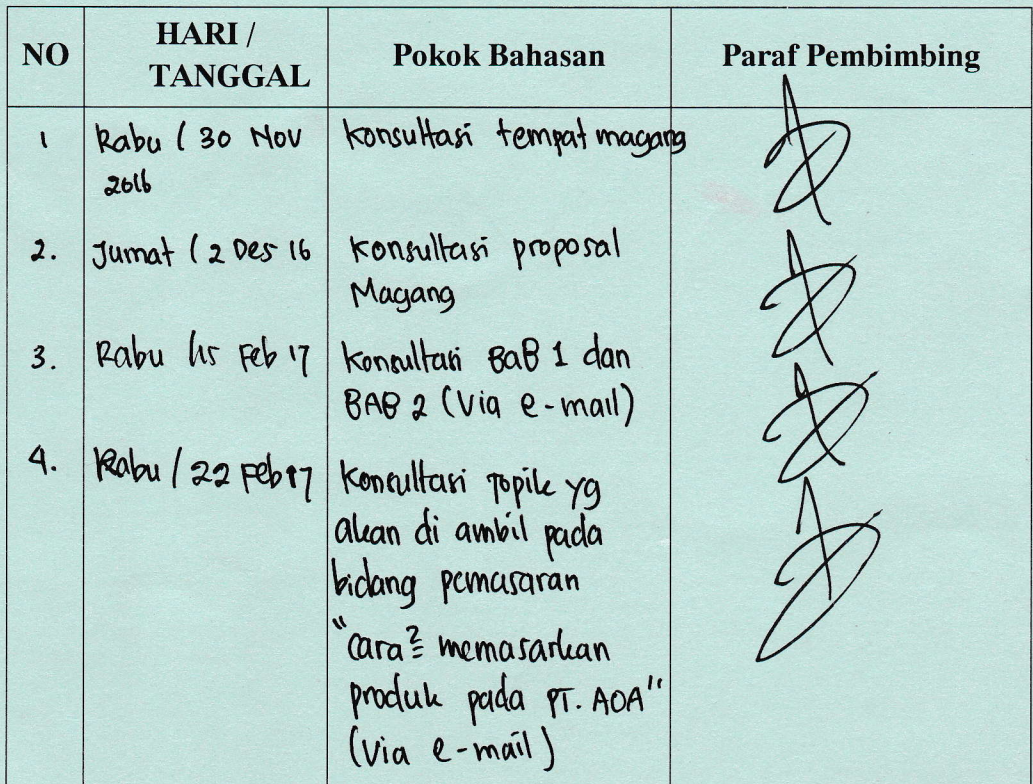 NO
HARI /
TANGGAL
Pokok Bahasan
Paraf Pembimbing
1
Rabu / 30 Nov
2016
Konsultasi tempat magang
2.
Jumat / 2 Des 16
Konsultasi proposal
Magang
3.
Rabu /15 Feb '17
Konsultasi BAB 1 dan
BAB 2 (Via e-mail)
4.
Rabu / 22 Feb 17
Konsultasi Topik yg
akan di ambil pada
bidang pemasaran
"Cara² memasarkan
produk pada PT. AOA"
(Via e-mail)